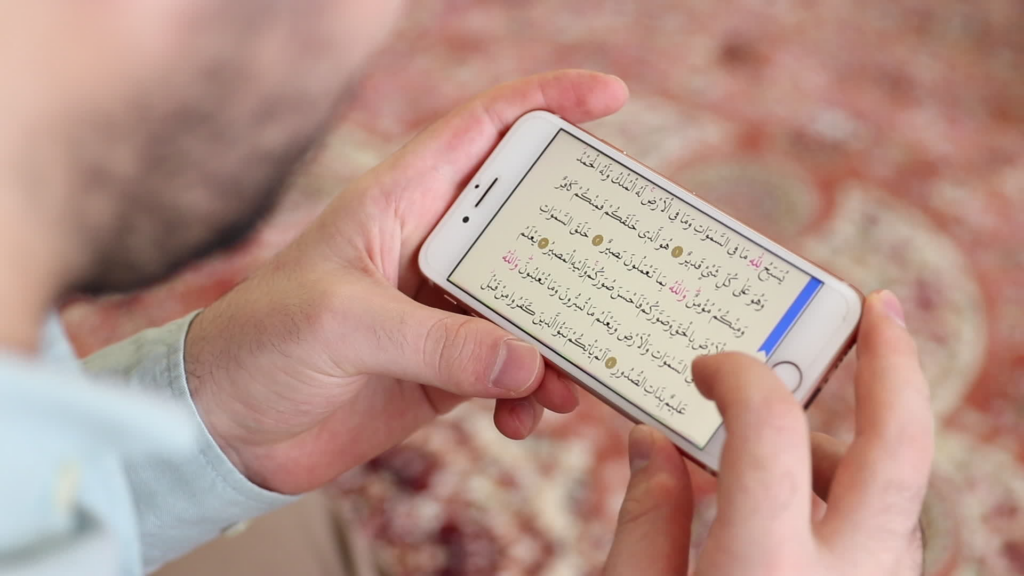 يُسَبِّحُ لِلَّهِ مَا فِى السَّمَٰوَٰتِ وَمَا فِى الْأَرْضِ لَهُ الْمُلْكُ وَلَهُ الْحَمْدُ
وَهُوَ عَلَىٰ كُلِّ شَىْءٍ قَدِيرٌ ١ هُوَ الَّذِى خَلَقَكُمْ فَمِنكُمْ كَافِرٌ
وَمِنكُم مُّؤْمِنٌ وَاللَّهُ بِمَا تَعْمَلُونَ بَصِيرٌ ٢ خَلَقَ السَّمَٰوَٰتِ
بِالْحَقِّ وَصَوَّرَكُمْ فَأَحْسَنَ صُوَرَكُمْ وَإِلَيْهِ الْمَصِيرُ ٣ يَعْلَمُ
السَّمَٰوَٰتِ وَالْأَرْضِ وَيَعْلَمُ مَا تُسِرُّونَ وَمَا تُعْلِنُونَ وَاللَّهُ
عَلِيمٌ بِذَاتِ الصُّدُورِ ٤ أَلَمْ يَأْتِكُمْ نَبَؤُا الَّذِينَ كَفَرُوا مِن قَبْلُ